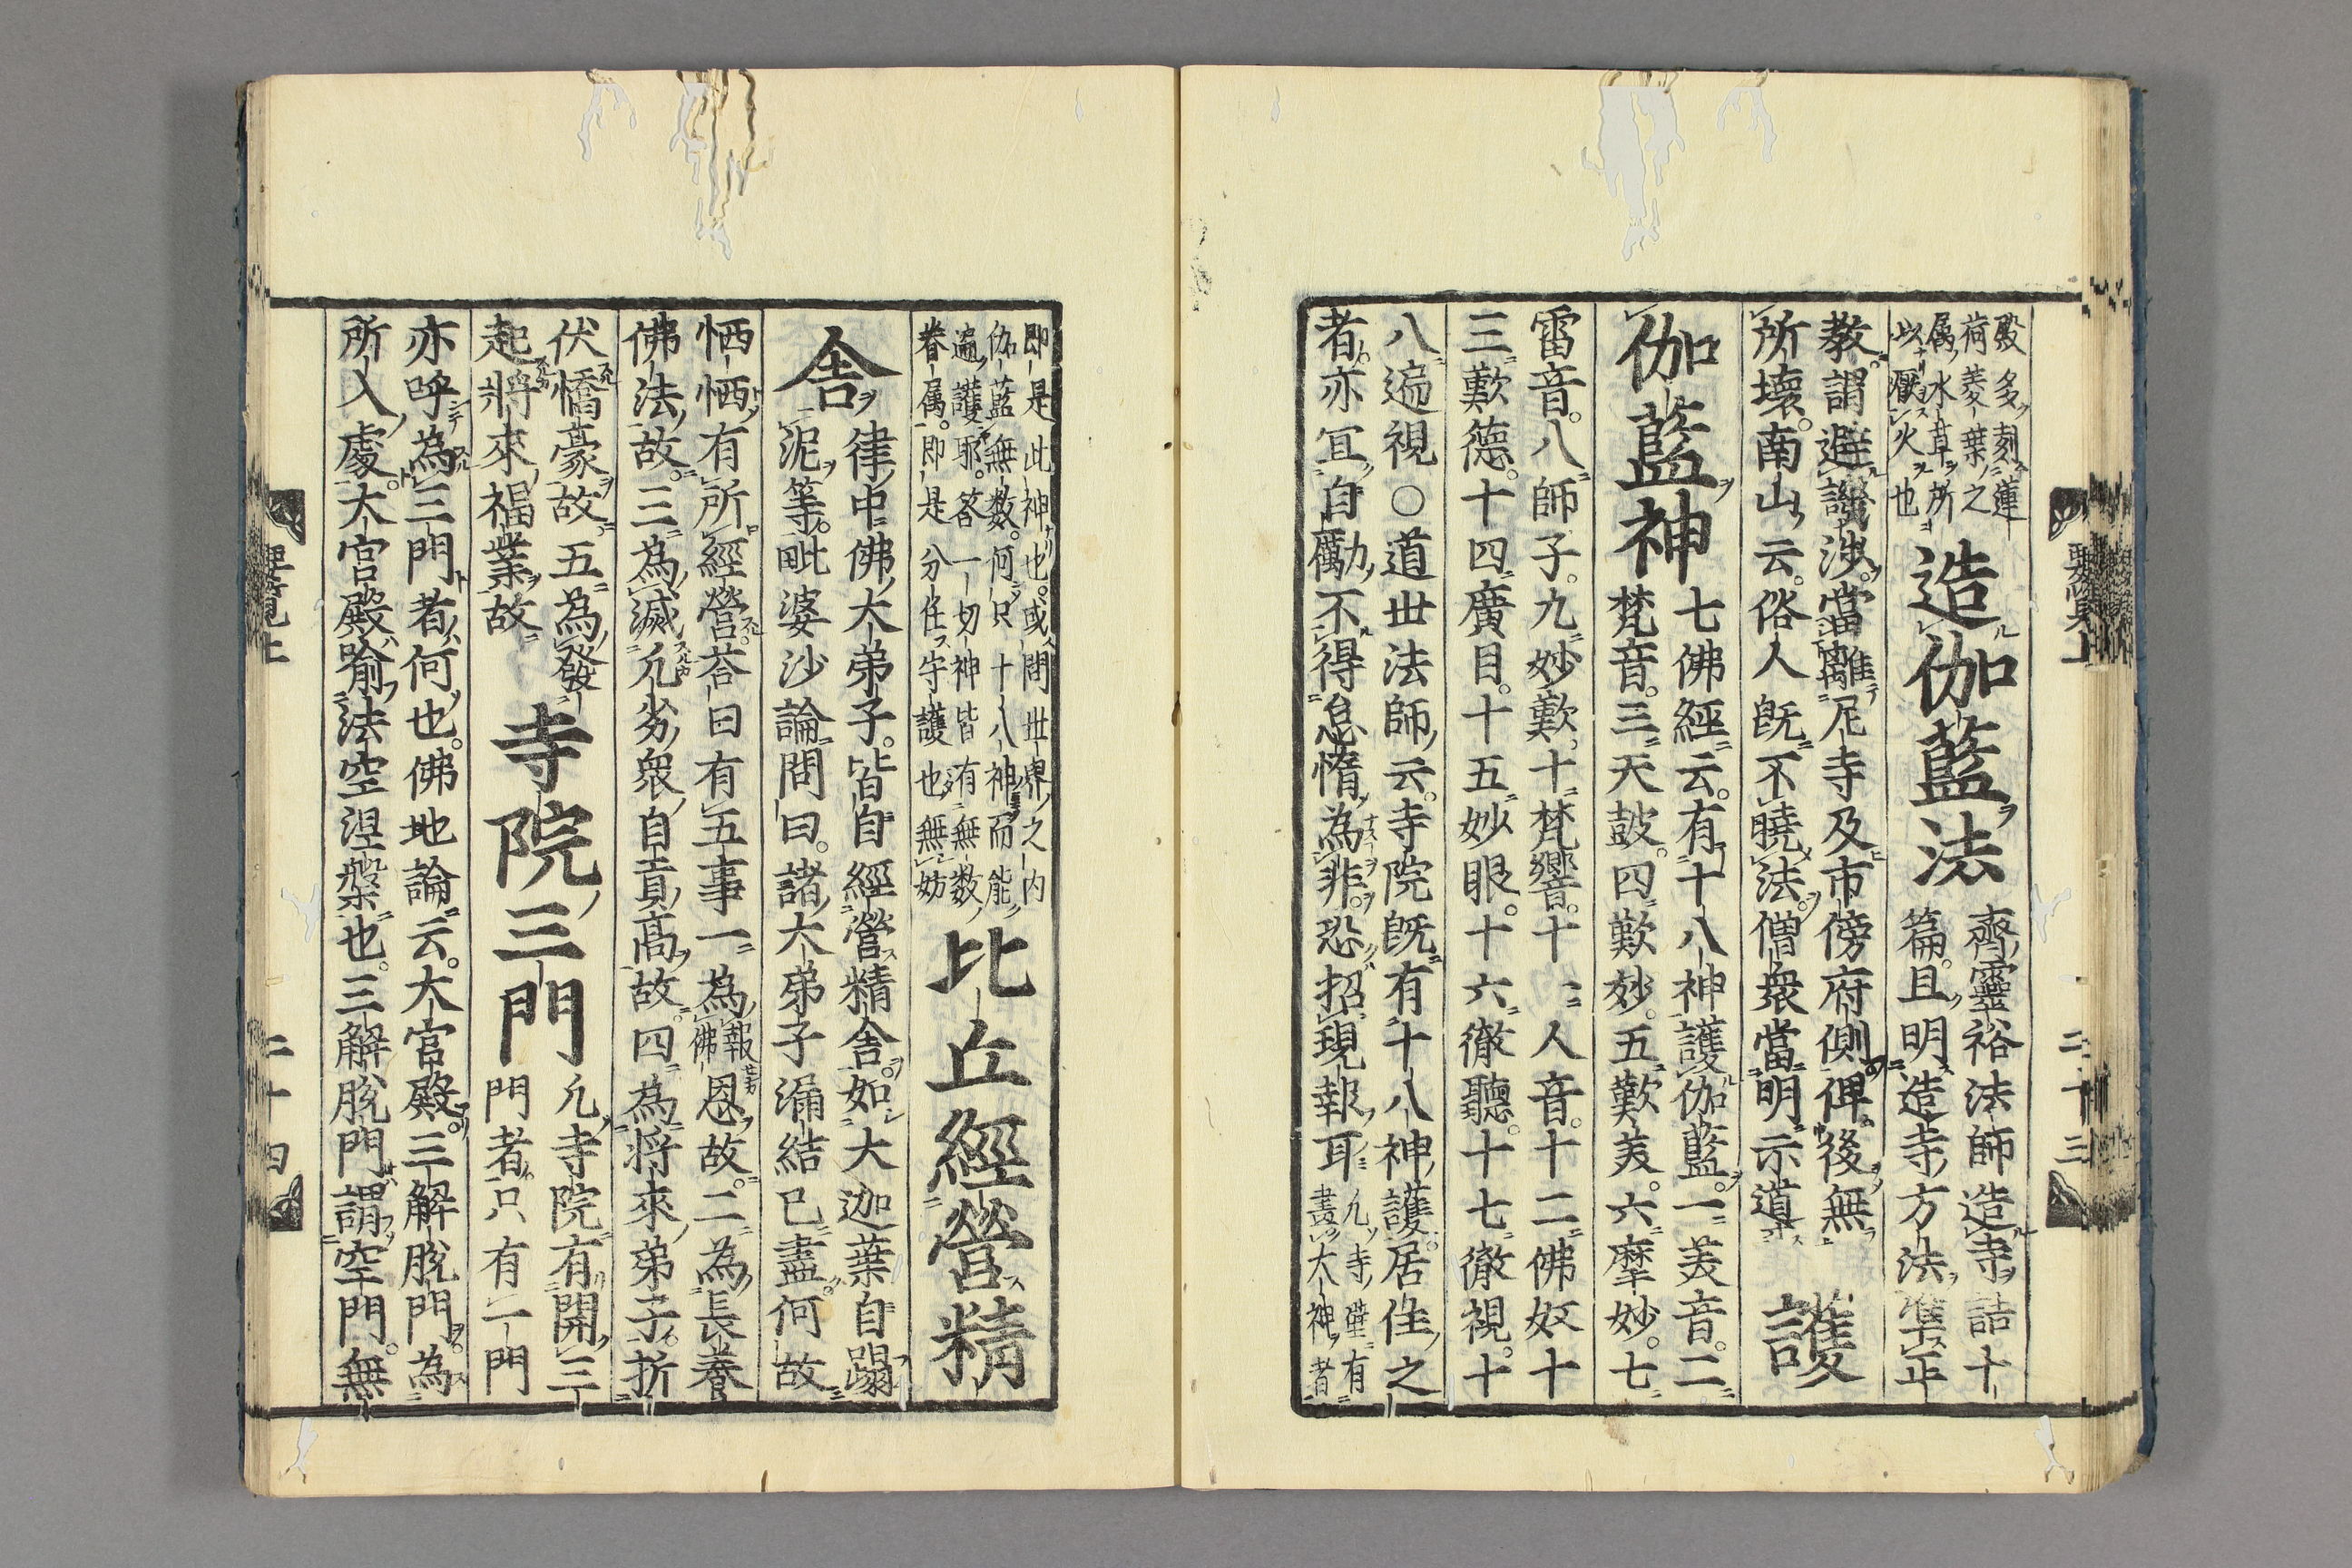 殿多刻蓮
荷菱葉之
属水草所
以厭火也
造伽藍法
齊靈裕法師造寺誥十
篇且明造寺方法準正
教謂避譏涉當離尼寺及市傍府側俾後無
所壞南山云俗人既不曉法僧衆當明示道
護
伽藍神
七佛經云有十八神護伽藍一美音二
梵音三天鼓四歎妙五歎美六摩妙七
雷音八師子九妙歎十梵響十一人音十二佛奴十
三歎德十四廣目十五妙眼十六徹聽十七徹視十
八遍視〇道世法師云寺院既有十八神護居住之
者亦宜自勵不得怠惰為非恐招現報耳
凡寺壁有
畫大神者
即是此神也或問世界之內
伽藍無数何只十八神而能
遍護耶荅一切神皆有無数
眷属即是分任守護也無妨
比丘經營精
舎
律中佛大弟子皆自經營精舎如大迦葉自蹋
泥等毗婆沙論問曰諸大弟子漏結已盡何故
恓恓有所經營荅曰有五事一為報佛恩故二為長養
佛法故三為滅凡劣衆自貢高故四為將來弟子折
伏憍豪故五為發
起將來福業故
寺院三門
凡寺院有開三
門者只有一門
亦呼為三門者何也佛地論云大宮殿三解脫門為
所入處大宮殿喻法空涅槃也三解脫門謂空門無
要覧上
二十三
二十四